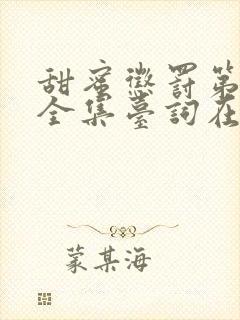 甜蜜懲罰第
全集臺詞在
蒙某海